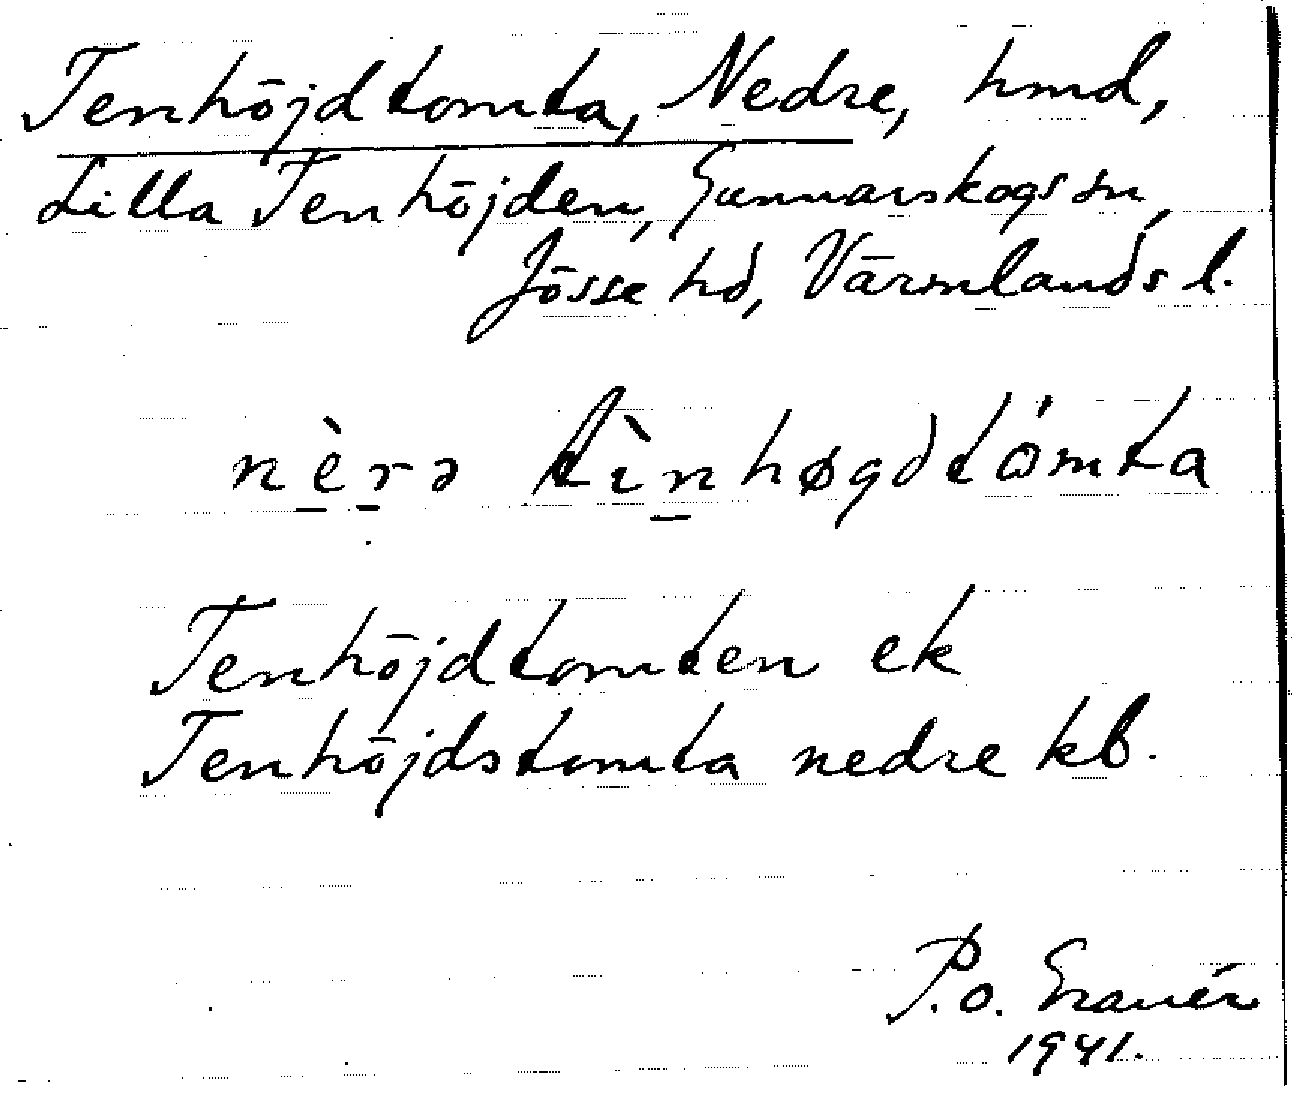 Tenhöjdtomta, Nedre, hmd,
Lilla Tenhöjden, Gunnarskogs sn,
Jösse hd, Värmlands l.
nèrə tìnhøgdtómta
Tenhöjdtomten ek
Tenhöjdstomta nedre kb.
P.O. Granér
1941.